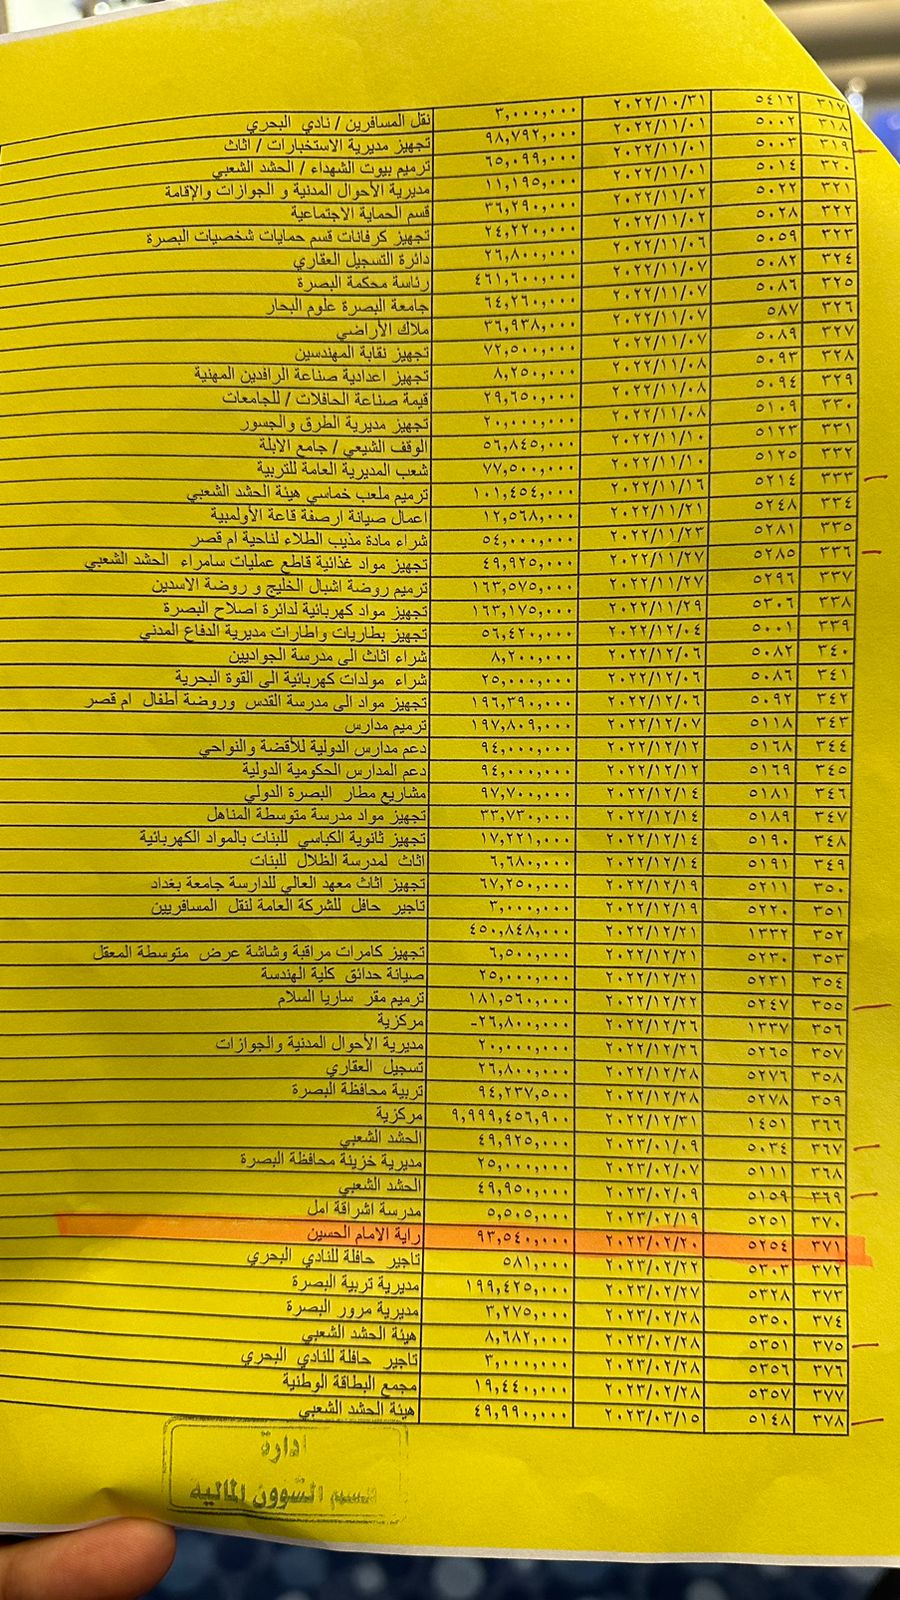 ٣١٧ ٥٤١٢ ٢٠٢٢/١٠/٣١ ٣,٠٠٠,٠٠٠ نقل المسافرين / نادي البحري
٣١٨ ٥٠٠٢ ٢٠٢٢/١١/٠١ ٩٨,٧٩٢,٠٠٠ تجهيز مديرية الاستخبارات / اثاث
٣١٩ ٥٠٠٣ ٢٠٢٢/١١/٠١ ٦٥,٠٩٩,٠٠٠ ترميم بيوت الشهداء / الحشد الشعبي
٣٢٠ ٥٠١٤ ٢٠٢٢/١١/٠١ ١١,١٩٥,٠٠٠ مديرية الأحوال المدنية و الجوازات والإقامة
٣٢١ ٥٠٢٢ ٢٠٢٢/١١/٠٢ ٣٦,٢٩٠,٠٠٠ قسم الحماية الاجتماعية
٣٢٢ ٥٠٢٨ ٢٠٢٢/١١/٠٢ ٢٤,٢٢٠,٠٠٠ تجهيز كرفانات قسم حمايات شخصيات البصرة
٣٢٣ ٥٠٥٩ ٢٠٢٢/١١/٠٦ ٢٦,٨٠٠,٠٠٠ دائرة التسجيل العقاري
٣٢٤ ٥٠٨٢ ٢٠٢٢/١١/٠٧ ٤٦١,٦٠٠,٠٠٠ رئاسة محكمة البصرة
٣٢٥ ٥٠٨٦ ٢٠٢٢/١١/٠٧ ٦٤,٢٦٠,٠٠٠ جامعة البصرة علوم البحار
٣٢٦ ٥٨٧ ٢٠٢٢/١١/٠٧ ٣٦,٩٣٨,٠٠٠ ملاك الأراضي
٣٢٧ ٥٠٨٩ ٢٠٢٢/١١/٠٧ ٧٢,٥٠٠,٠٠٠ تجهيز نقابة المهندسين
٣٢٨ ٥٠٩٣ ٢٠٢٢/١١/٠٨ ٨,٢٥٠,٠٠٠ تجهيز اعدادية صناعة الرافدين المهنية
٣٢٩ ٥٠٩٤ ٢٠٢٢/١١/٠٨ ٢٩,٦٥٠,٠٠٠ قيمة صناعة الحافلات / للجامعات
٣٣٠ ٥١٠٩ ٢٠٢٢/١١/٠٨ ٢٠,٠٠٠,٠٠٠ تجهيز مديرية الطرق والجسور
٣٣١ ٥١٢٣ ٢٠٢٢/١١/١٠ ٥٦,٨٤٥,٠٠٠ الوقف الشيعي / جامع الابلة
٣٣٢ ٥١٢٥ ٢٠٢٢/١١/١٠ ٧٧,٥٠٠,٠٠٠ شعب المديرية العامة للتربية
٣٣٣ ٥٢١٤ ٢٠٢٢/١١/١٦ ١٠١,٤٥٤,٠٠٠ ترميم ملعب خماسي هيئة الحشد الشعبي
٣٣٤ ٥٢٤٨ ٢٠٢٢/١١/٢١ ١٢,٥٦٨,٠٠٠ اعمال صيانة ارصفة قاعة الأولمبية
٣٣٥ ٥٢٨١ ٢٠٢٢/١١/٢٣ ٥٤,٠٠٠,٠٠٠ شراء مادة مذيب الطلاء لناحية ام قصر
٣٣٦ ٥٢٨٥ ٢٠٢٢/١١/٢٧ ٤٩,٩٢٥,٠٠٠ تجهيز مواد غذائية قاطع عمليات سامراء الحشد الشعبي
٣٣٧ ٥٢٩٦ ٢٠٢٢/١١/٢٧ ١٦٣,٥٧٥,٠٠٠ ترميم روضة اشبال الخليج و روضة الاسدين
٣٣٨ ٥٣٠٦ ٢٠٢٢/١١/٢٩ ١٦٣,١٧٥,٠٠٠ تجهيز مواد كهربائية لدائرة اصلاح البصرة
٣٣٩ ٥٠٠١ ٢٠٢٢/١٢/٠٤ ٥٦,٤٢٠,٠٠٠ تجهيز بطاريات واطارات مديرية الدفاع المدني
٣٤٠ ٥٠٨٢ ٢٠٢٢/١٢/٠٦ ٨,٢٠٠,٠٠٠ شراء اثاث الى مدرسة الجواديين
٣٤١ ٥٠٨٦ ٢٠٢٢/١٢/٠٦ ٢٥,٠٠٠,٠٠٠ شراء مولدات كهربائية الى القوة البحرية
٣٤٢ ٥٠٩٢ ٢٠٢٢/١٢/٠٦ ١٩٦,٣٩٠,٠٠٠ تجهيز مواد الى مدرسة القدس وروضة أطفال ام قصر
٣٤٣ ٥١١٨ ٢٠٢٢/١٢/٠٧ ١٩٧,٨٠٩,٠٠٠ ترميم مدارس
٣٤٤ ٥١٦٨ ٢٠٢٢/١٢/١٢ ٩٤,٠٠٠,٠٠٠ دعم مدارس الدولية للأقضية والنواحي
٣٤٥ ٥١٦٩ ٢٠٢٢/١٢/١٢ ٩٤,٠٠٠,٠٠٠ دعم المدارس الحكومية الدولية
٣٤٦ ٥١٨١ ٢٠٢٢/١٢/١٤ ٩٧,٧٠٠,٠٠٠ مشاريع مطار البصرة الدولي
٣٤٧ ٥١٨٩ ٢٠٢٢/١٢/١٤ ٣٣,٧٣٠,٠٠٠ تجهيز مواد مدرسة متوسطة المناهل
٣٤٨ ٥١٩٠ ٢٠٢٢/١٢/١٤ ١٧,٢٢١,٠٠٠ تجهيز ثانوية الكباسي للبنات بالمواد الكهربائية
٣٤٩ ٥١٩١ ٢٠٢٢/١٢/١٤ ٦,٦٨٠,٠٠٠ اثاث لمدرسة الظلال للبنات
٣٥٠ ٥٢١١ ٢٠٢٢/١٢/١٩ ٦٧,٢٥٠,٠٠٠ تجهيز اثاث معهد العالي للدارسة جامعة بغداد
٣٥١ ٥٢٢٠ ٢٠٢٢/١٢/١٩ ٣,٠٠٠,٠٠٠ تاجير حافل للشركة العامة لنقل المسافريين
٣٥٢ ١٣٣٢ ٢٠٢٢/١٢/٢١ ٤٥٠,٨٤٨,٠٠٠
٣٥٣ ٥٢٣٠ ٢٠٢٢/١٢/٢١ ٦,٥٠٠,٠٠٠ تجهيز كامرات مراقبة وشاشة عرض متوسطة المعقل
٣٥٤ ٥٢٣١ ٢٠٢٢/١٢/٢١ ٢٥,٠٠٠,٠٠٠ صيانة حدائق كلية الهندسة
٣٥٥ ٥٢٤٧ ٢٠٢٢/١٢/٢٢ ١٨١,٥٦٠,٠٠٠ ترميم مقر سرايا السلام
٣٥٦ ١٣٣٧ ٢٠٢٢/١٢/٢٦ ٢٦,٨٠٠,٠٠٠- مركزية
٣٥٧ ٥٢٦٥ ٢٠٢٢/١٢/٢٦ ٢٠,٠٠٠,٠٠٠ مديرية الأحوال المدنية والجوازات
٣٥٨ ٥٢٧٦ ٢٠٢٢/١٢/٢٨ ٢٦,٨٠٠,٠٠٠ تسجيل العقاري
٣٥٩ ٥٢٧٨ ٢٠٢٢/١٢/٢٨ ٩٤,٢٣٧,٥٠٠ تربية محافظة البصرة
٣٦٦ ١٤٥١ ٢٠٢٢/١٢/٣١ ٩,٩٩٩,٤٥٦,٩٠٠ مركزية
٣٦٧ ٥٠٣٤ ٢٠٢٣/٠١/٠٩ ٤٩,٩٢٥,٠٠٠ الحشد الشعبي
٣٦٨ ٥١١١ ٢٠٢٣/٠٢/٠٧ ٢٥,٠٠٠,٠٠٠ مديرية خزينة محافظة البصرة
٣٦٩ ٥١٥٩ ٢٠٢٣/٠٢/٠٩ ٤٩,٩٥٠,٠٠٠ الحشد الشعبي
٣٧٠ ٥٢٥١ ٢٠٢٣/٠٢/١٩ ٥,٥٠٥,٠٠٠ مدرسة اشراقة امل
٣٧١ ٥٢٥٤ ٢٠٢٣/٠٢/٢٠ ٩٣,٥٤٠,٠٠٠ راية الامام الحسين
٣٧٢ ٥٣٠٣ ٢٠٢٣/٠٢/٢٢ ٥٨١,٠٠٠ تاجير حافلة للنادي البحري
٣٧٣ ٥٣٢٨ ٢٠٢٣/٠٢/٢٧ ١٩٩,٤٢٥,٠٠٠ مديرية تربية البصرة
٣٧٤ ٥٣٥٠ ٢٠٢٣/٠٢/٢٨ ٣,٢٧٥,٠٠٠ مديرية مرور البصرة
٣٧٥ ٥٣٥١ ٢٠٢٣/٠٢/٢٨ ٨,٦٨٢,٠٠٠ هيئة الحشد الشعبي
٣٧٦ ٥٣٥٦ ٢٠٢٣/٠٢/٢٨ ٣,٠٠٠,٠٠٠ تاجير حافلة للنادي البحري
٣٧٧ ٥٣٥٧ ٢٠٢٣/٠٢/٢٨ ١٩,٤٤٠,٠٠٠ مجمع البطاقة الوطنية
٣٧٨ ٥١٤٨ ٢٠٢٣/٠٣/١٥ ٤٩,٩٩٠,٠٠٠ هيئة الحشد الشعبي
ادارة
قسم الشؤون المالية